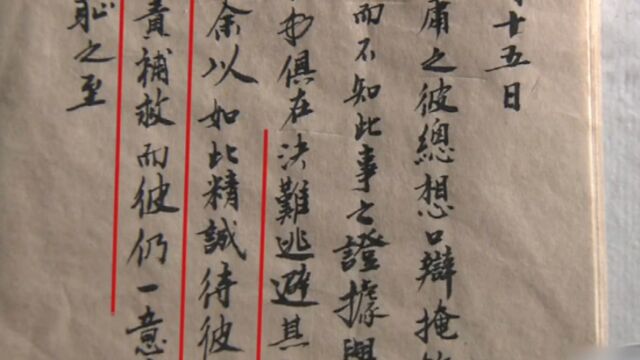 十五日
庸之彼總想口辯掩
而不知此事之證據與
俱在決難逃避其
余以如此精誠待彼
責補救而彼仍一意
恥之至